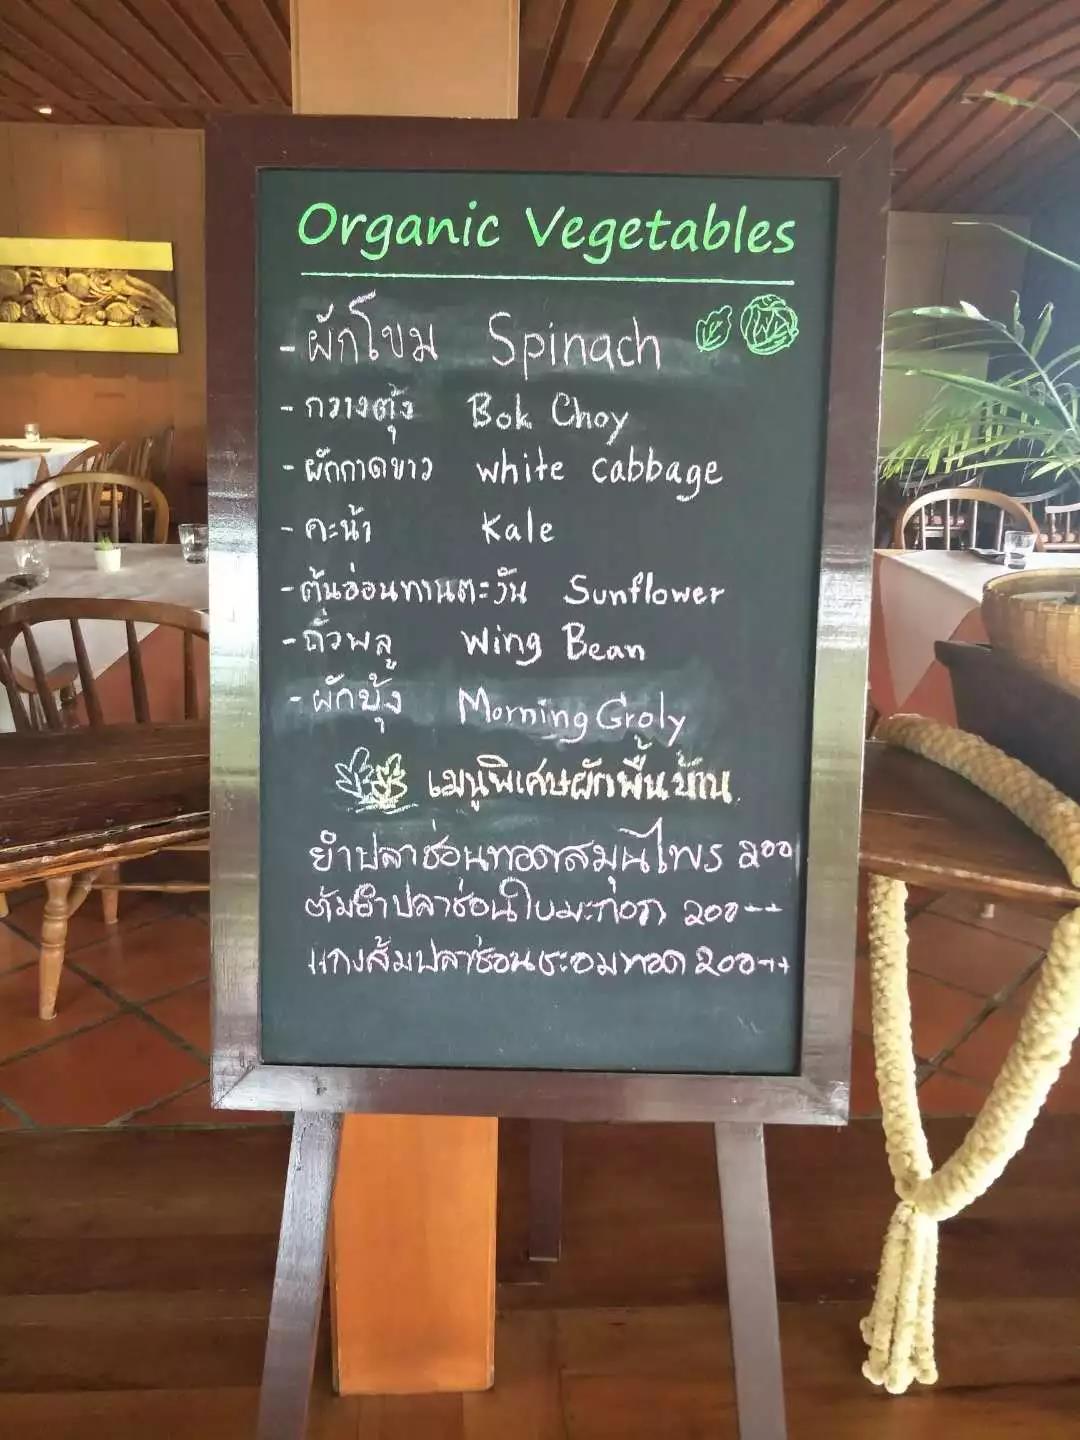 Organic Vegetables
- ผักโขม Spinach
- กวางตุ้ง Bok Choy
- ผักกาดขาว white cabbage
- คะน้า Kale
- ต้นอ่อนทานตะวัน Sunflower
- ถั่วพลู Wing Bean
- ผักบุ้ง Morning Groly
เมนูพิเศษผักพื้นบ้าน
ยำปลาช่อนทอดสมุนไพร ๒๐๐
ต้มยำปลาช่อนใบมะกอก ๒๐๐--
แกงส้มปลาช่อนชะอมทอด ๒๐๐++